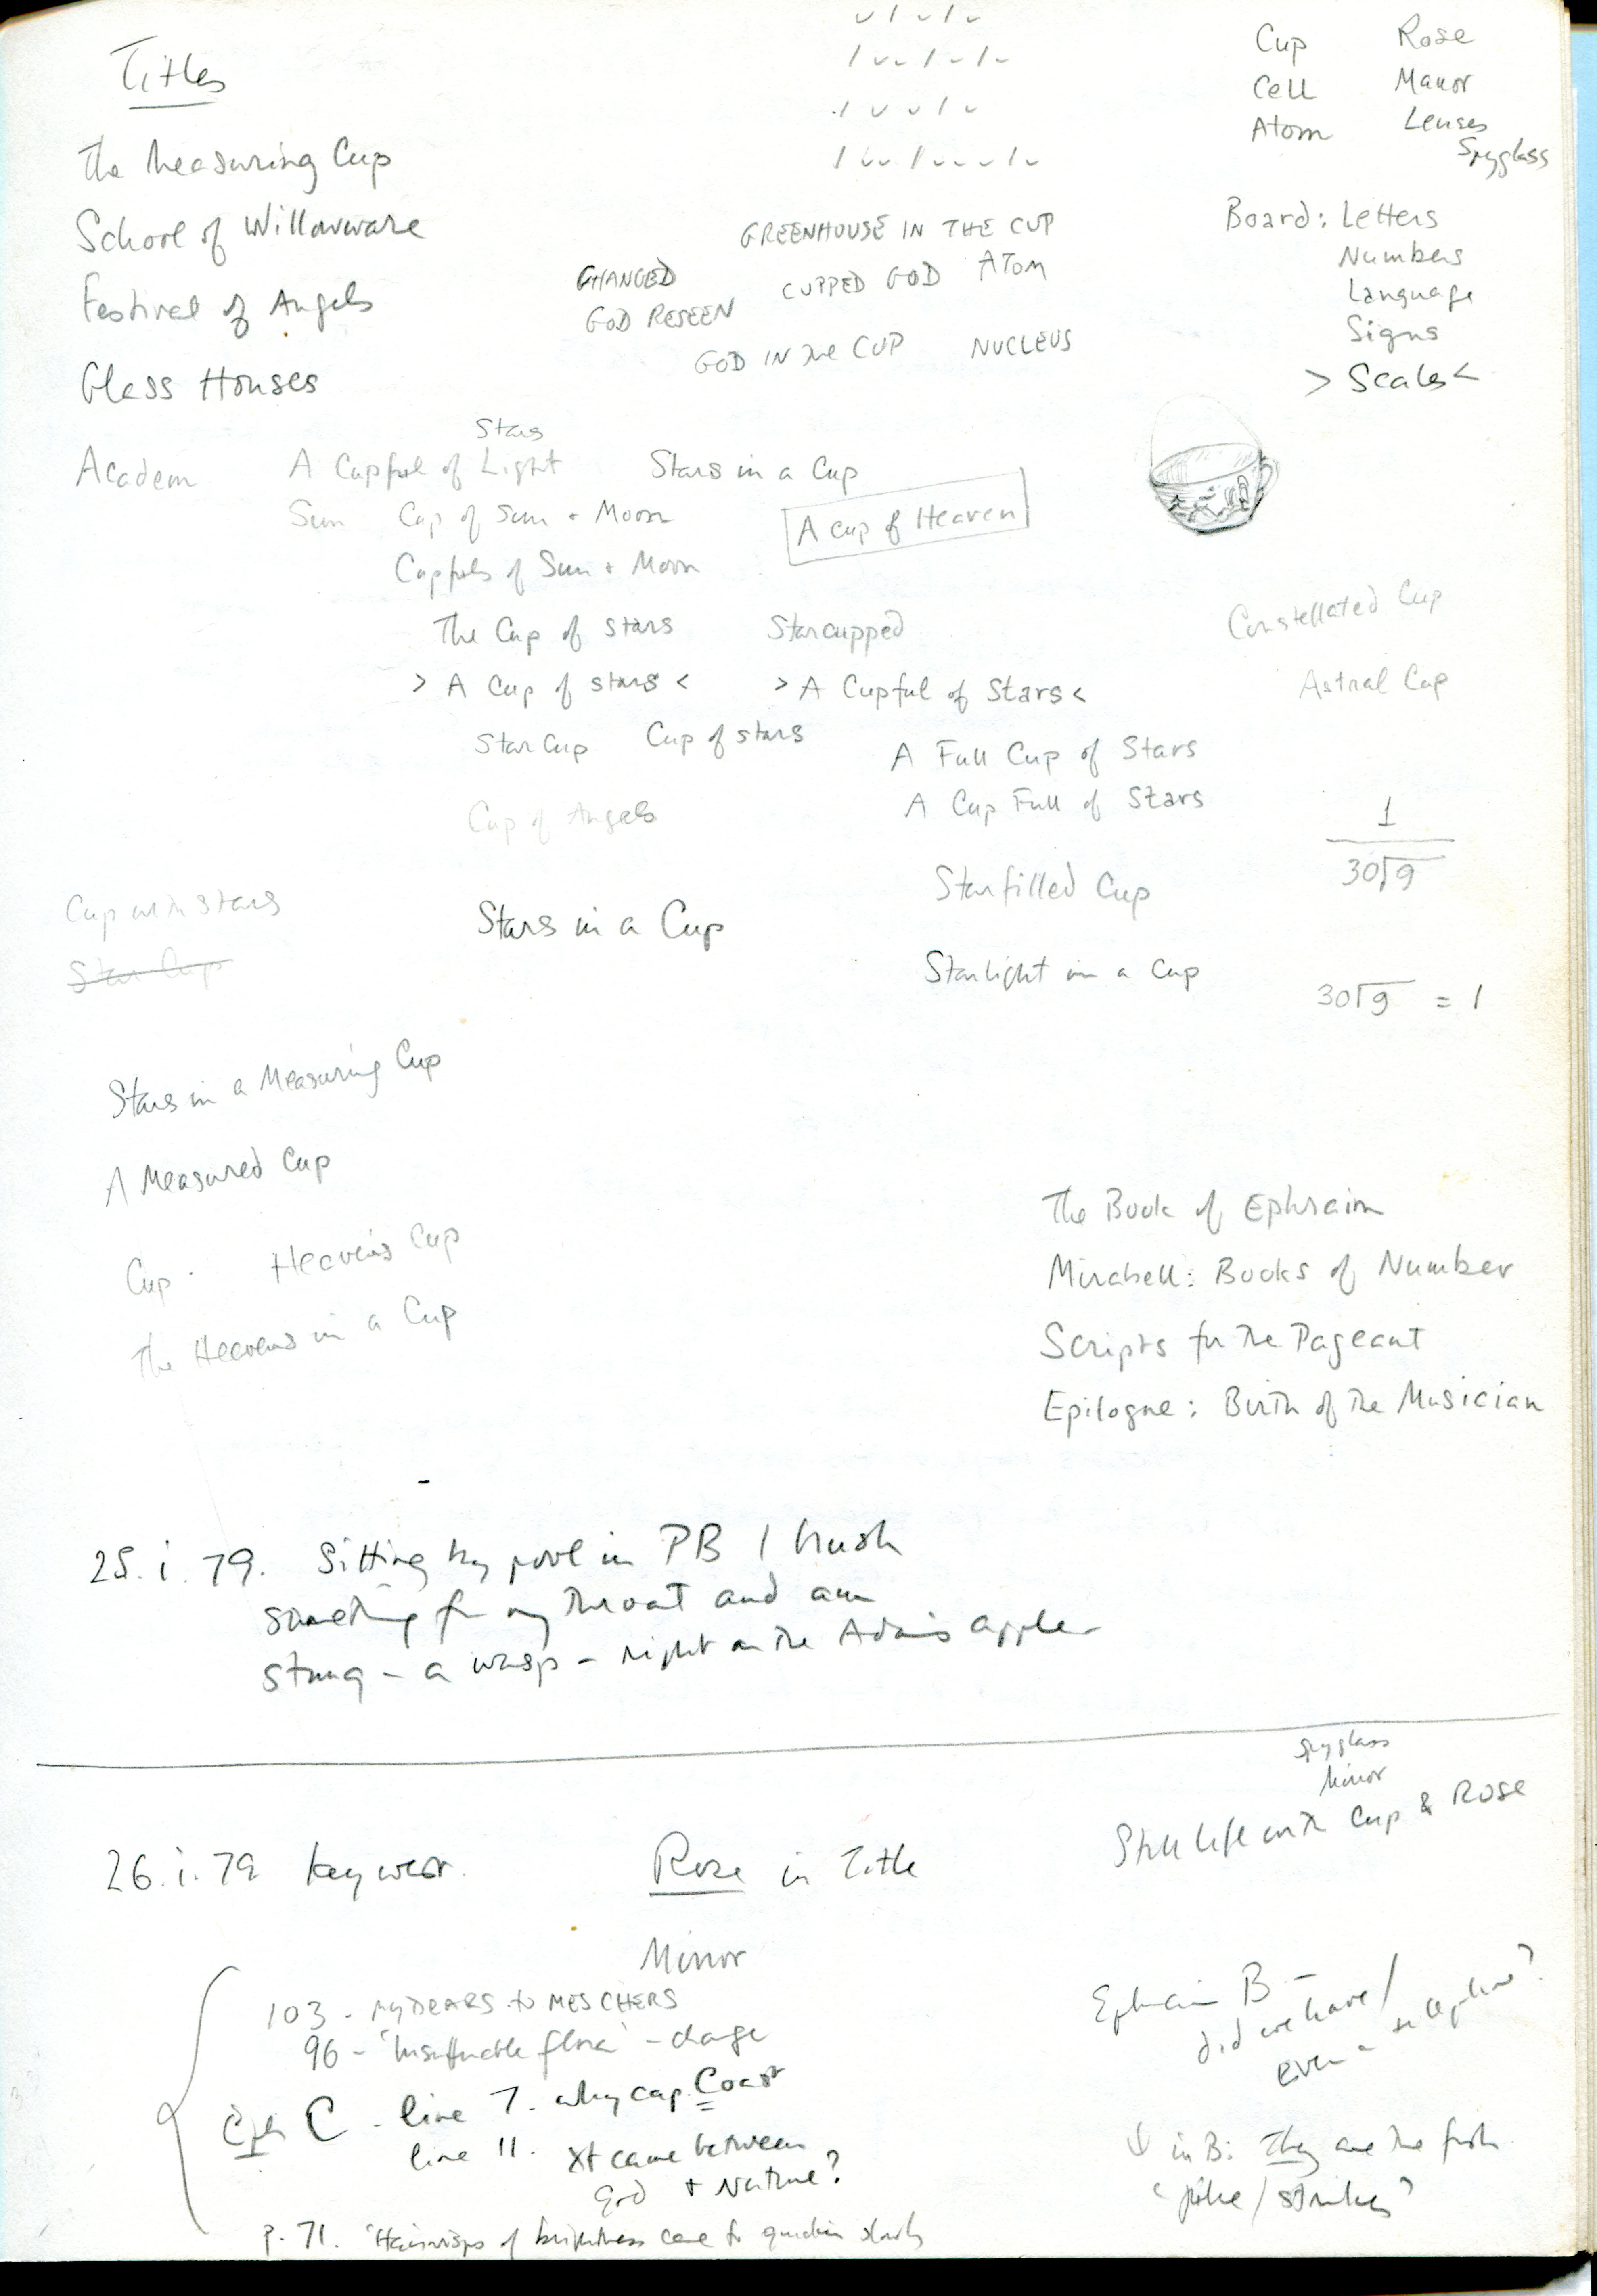 Titles
The Measuring Cup
School of Willowware
Festival of Angels
Glass Houses
Cup Rose
Cell Manor
Atom Lenses
Spyglass
Board: Letters
Numbers
Language
Signs
> Scales <
GREENHOUSE IN THE CUP
CHANGED CUPPED GOD ATOM
GOD RESEEN
GOD IN THE CUP NUCLEUS
Stars
Academ A Cupful of Light Stars in a Cup
Sun Cup of Sun + Moon A Cup of Heaven
Cupfuls of Sun + Moon
The Cup of Stars Starcupped Constellated Cup
> A Cup of Stars < > A Cupful of Stars < Astral Cup
Star Cup Cup of Stars A Full Cup of Stars
Cup of Angels A Cup Full of Stars
1
30√9
Starfilled Cup
Cup with Stars Stars in a Cup
Star Cup Starlight in a Cup
30√9 = 1
Stars in a Measuring Cup
A Measured Cup
Cup. Heaven's Cup
The Heavens in a Cup
The Book of Ephraim
Mirabell: Books of Number
Scripts for the Pageant
Epilogue: Birth of the Musician
25.i.79. Sitting by pool in PB I brush
something fr my throat and am
stung – a wasp – right on the Adam's apple
Spyglass
Mirror
Still Life with Cup & Rose
26.i.79 Key West. Rose in Title
Mirror
103 - MY DEARS to MES CHERS
96 - 'Insufferable flora' - change
Eph C - line 7. why cap. Coast
line 11. Xt came between
God + Nature?
p. 71. 'Hairwisps of brightness come to quicken
Ephraim B -
did we have /
even a telephone?
↓ in B: They are the fish
'pike / strikes'?